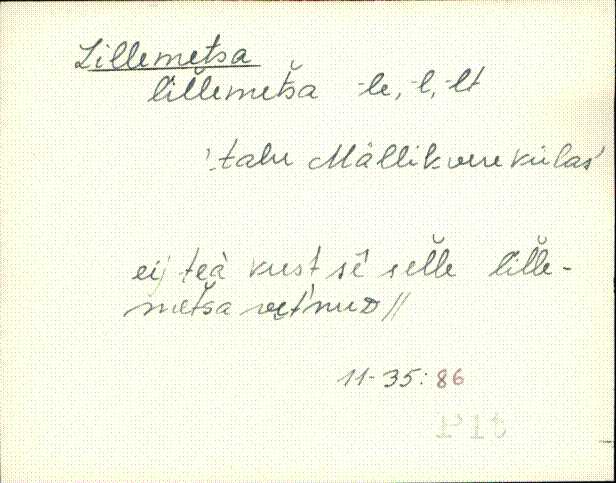 Lillemetsa
lil̆lemet̆sa -le, -l, -lt
'talu Mällikvere külas'
eij teà kust sê̬ sel̆le lil̆le-
met̆sa vet́nuD //
11-35: 86